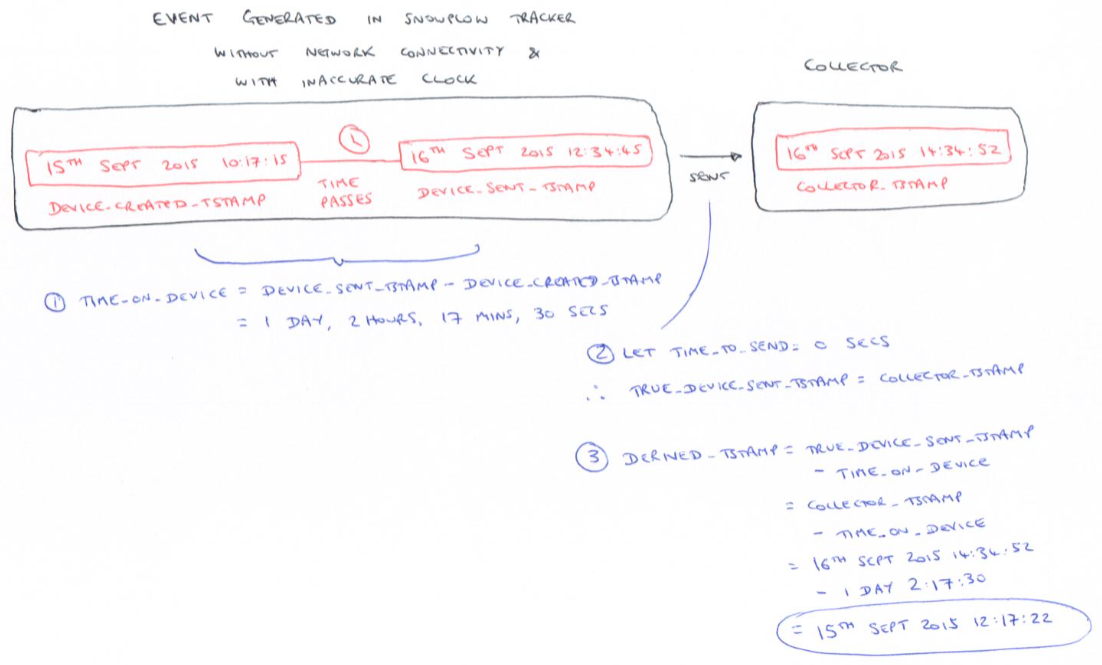 EVENT GENERATED IN SNOWPLOW TRACKER
WITHOUT NETWORK CONNECTIVITY &
WITH INACCURATE CLOCK
COLLECTOR
15TH SEPT 2015 10:17:15
1
16TH SEPT 2015 12:34:45
DEVICE_CREATED_TSTAMP
TIME
PASSES
DEVICE_SENT_TSTAMP
SENT
16TH SEPT 2015 14:34:52
COLLECTOR_TSTAMP
1 TIME_ON_DEVICE = DEVICE_SENT_TSTAMP - DEVICE_CREATED_TSTAMP
= 1 DAY, 2 HOURS, 17 MINS, 30 SECS
2 LET TIME_TO_SEND = 0 SECS
∴ TRUE_DEVICE_SENT_TSTAMP = COLLECTOR_TSTAMP
3 DERIVED_TSTAMP = TRUE_DEVICE_SENT_TSTAMP
- TIME_ON_DEVICE
= COLLECTOR_TSTAMP
- TIME_ON_DEVICE
= 16TH SEPT 2015 14:34:52
- 1 DAY 2:17:30
= 15TH SEPT 2015 12:17:22